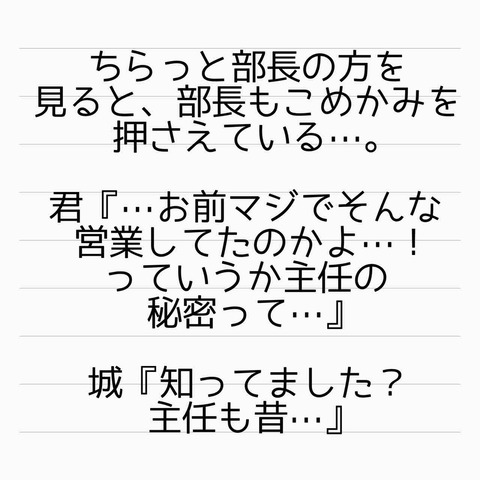 ちらっと部長の方を
見ると、部長もこめかみを
押さえている…。
君『…お前マジでそんな
営業してたのかよ…！
っていうか主任の
秘密って…』
城『知ってました？
主任も昔…』